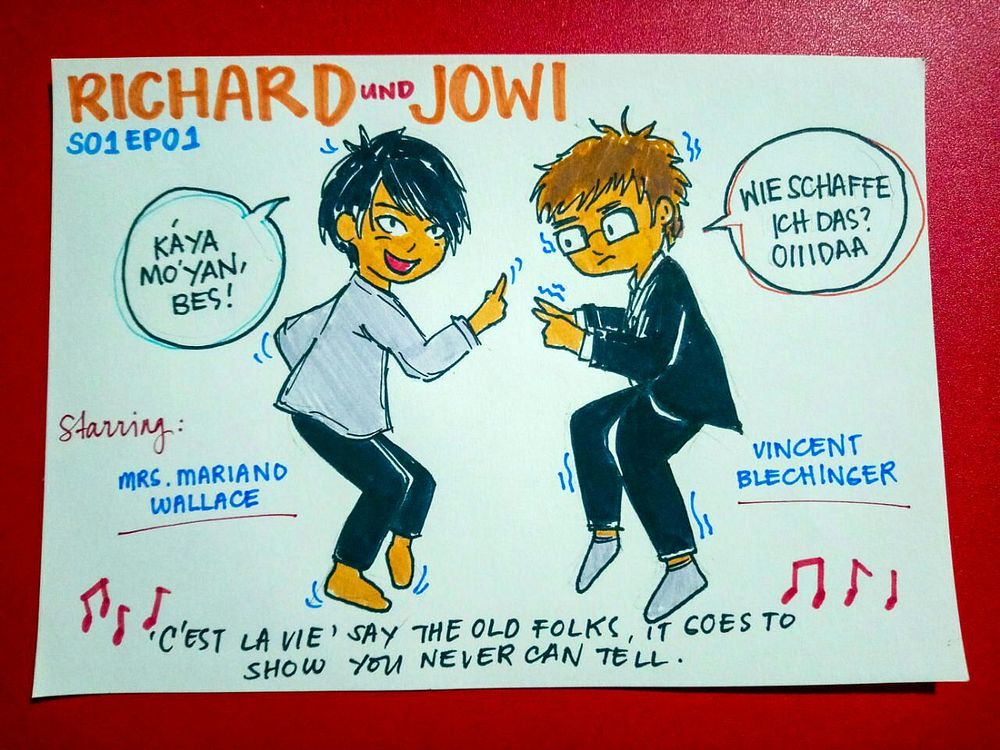 RICHARD UND JOWI
S01 EP01
KÁYA
MO'YAN,
BES!
WIE SCHAFFE
ICH DAS?
OIIIDAA
Starring:
MRS. MARIANO
WALLACE
VINCENT
BLECHINGER
'C'EST LA VIE' SAY THE OLD FOLKS, IT GOES TO
SHOW YOU NEVER CAN TELL.